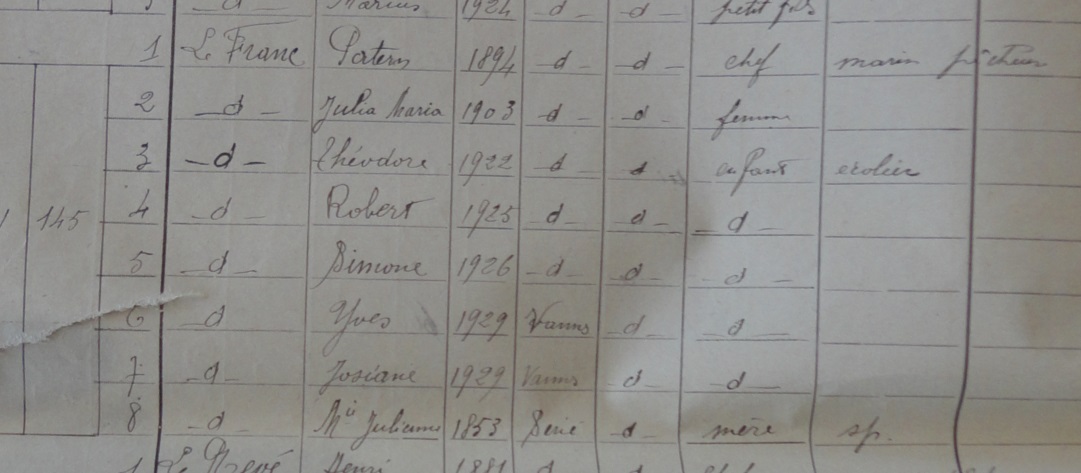 d Marius 1924 d d petit fils
1 Le Franc Patern 1894 d d chef marin pêcheur
2 d Julia Maria 1903 d d femme
3 d Théodore 1922 d d enfant écolier
145 4 d Robert 1925 d d d
5 d Simone 1926 d d d
6 d Yves 1929 Vannes d d
7 d Josiane 1929 Vannes d d
8 d Mie Julienne 1853 Séné d mère sp.
1 Henri 1881 d d